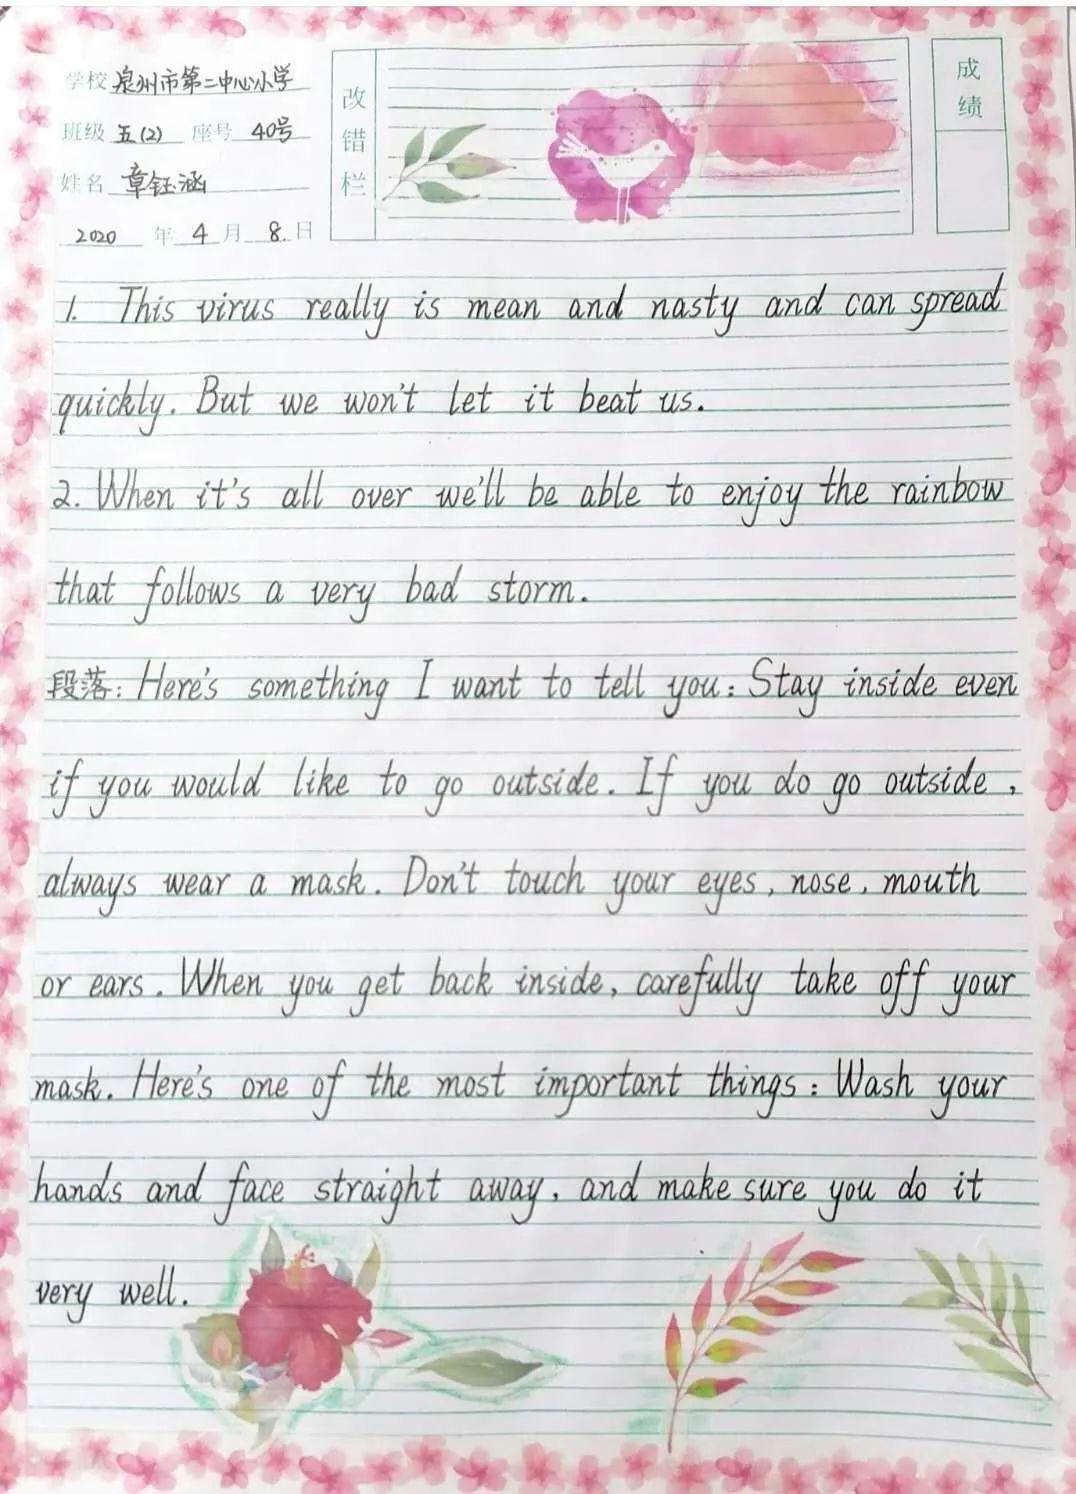 学校 泉州市第二中心小学
班级 五(2) 座号 40号
姓名 章钰涵
2020 年 4 月 8 日
改错栏
成绩
1. This virus really is mean and nasty and can spread
quickly. But we won't let it beat us.
2. When it's all over we'll be able to enjoy the rainbow
that follows a very bad storm.
段落: Here's something I want to tell you: Stay inside even
if you would like to go outside. If you do go outside,
always wear a mask. Don't touch your eyes, nose, mouth
or ears. When you get back inside, carefully take off your
mask. Here's one of the most important things: Wash your
hands and face straight away, and make sure you do it
very well.